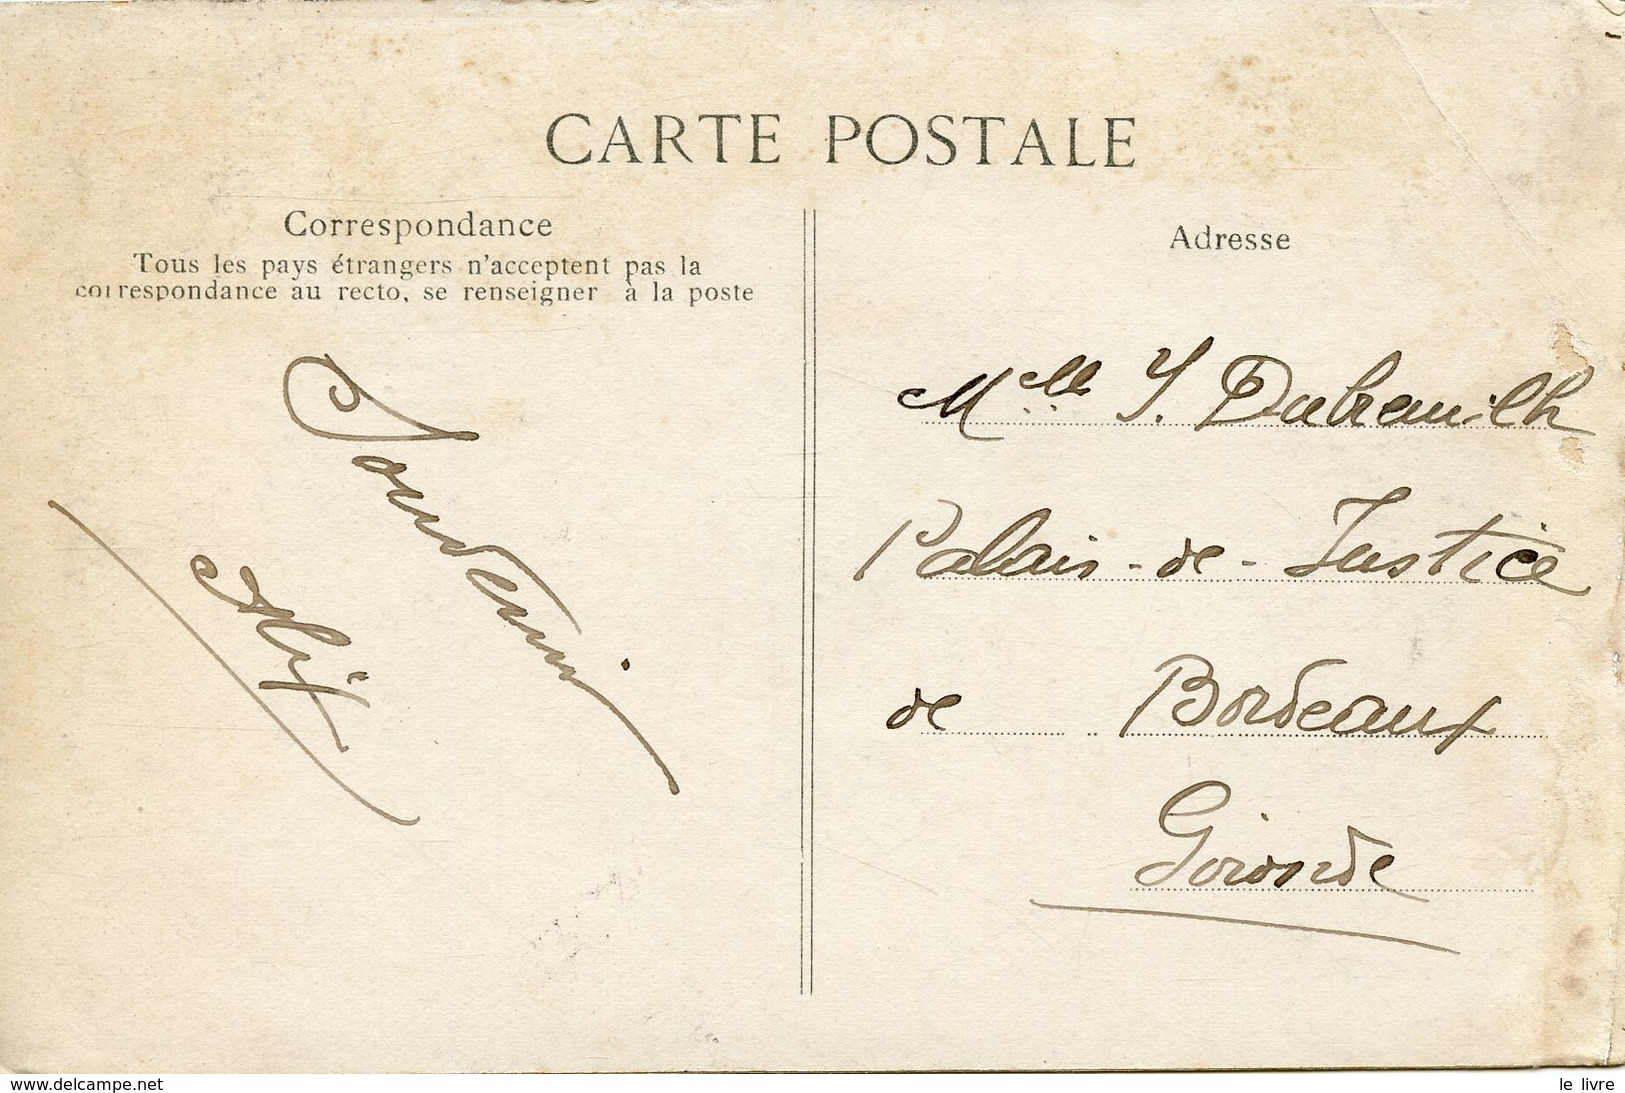 CARTE POSTALE
Correspondance
Tous les pays étrangers n'acceptent pas la
correspondance au recto, se renseigner à la poste
Souvenir
Adresse
Mlle Y. Dubreuilh
Palais-de-Justice
de Bordeaux
Gironde
www.delcampe.net
le livre